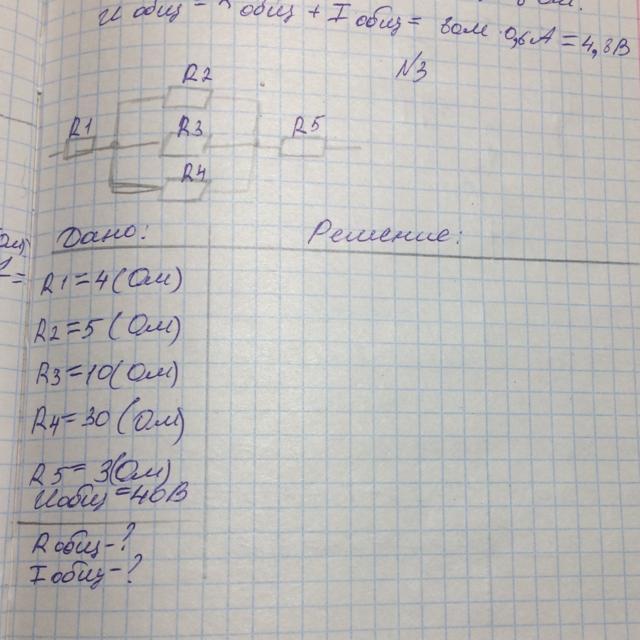 U общ = R общ + I общ = 8 ом · 0,6А = 4,8В
N3
R2
R1
R3
R5
R4
Дано:
Решение:
R1=4(Ом)
R2=5(Ом)
R3=10(Ом)
R4=30(Ом)
R5=3(Ом)
Uобщ=40В
Rобщ-?
Iобщ-?